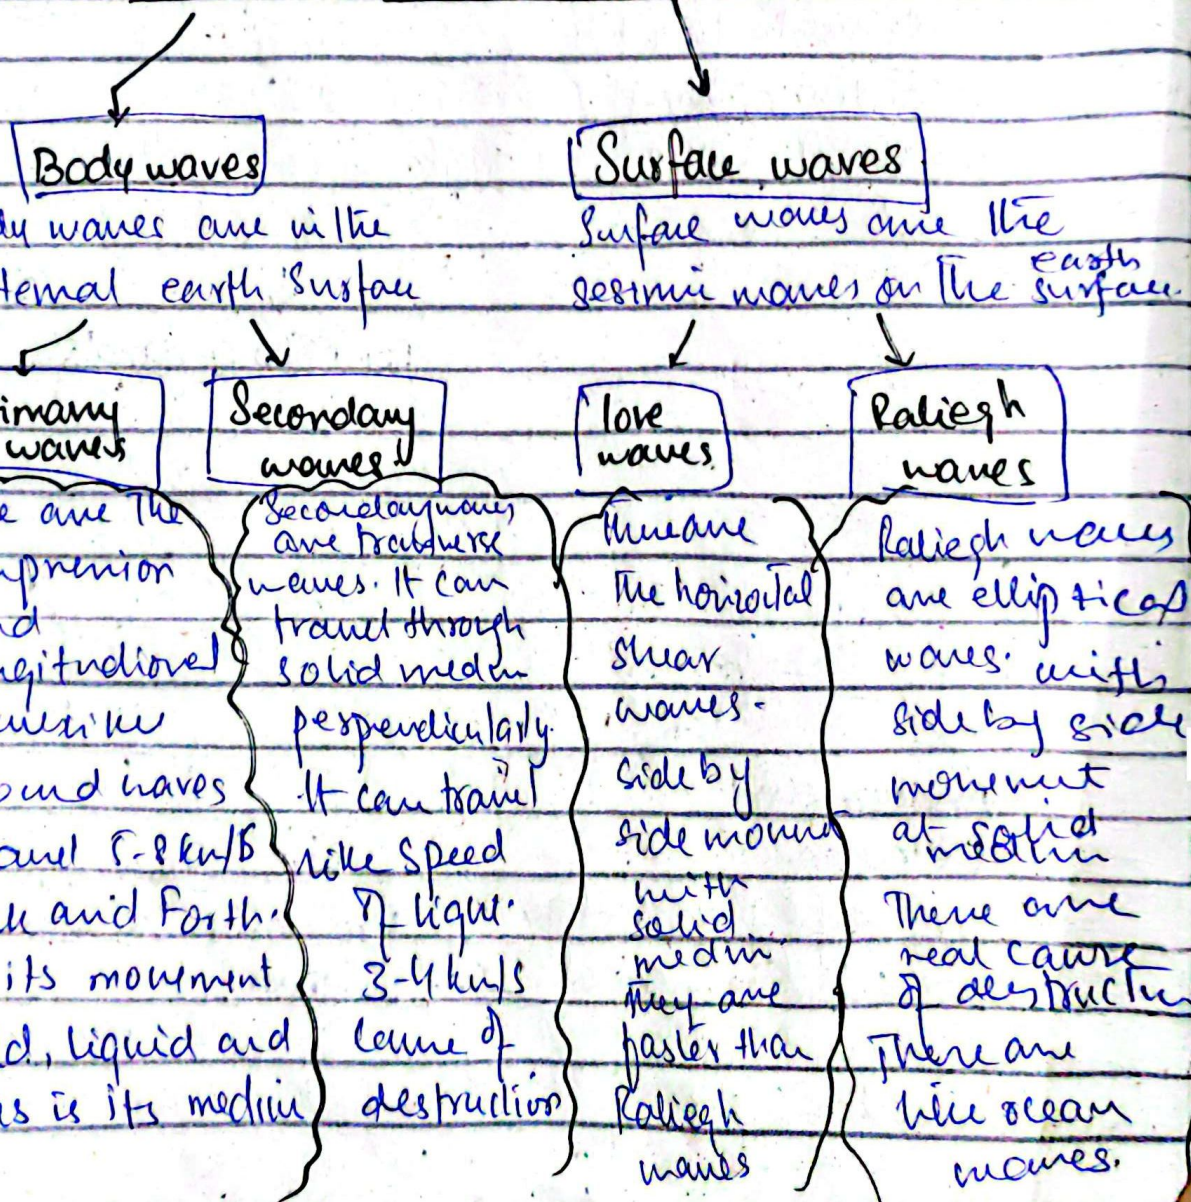 Body waves
Surface waves
dy waves are in the
ternal earth surface
Surface waves are the
earth
sesimic waves on the surface.
imary
waves
Secondary
waves
love
waves
Raliegh
waves
e are the
mpression
nd
ngitudional
ound waves
avel 5-8 km/s
ck and forth.
its movement
id, liquid and
is its medium
Secondary waves
are tranverse
waves. It can
travel through
solid medium
perpendicularly.
It can travel
like speed
of light.
3-4 km/s
cause of
destruction
These are
the horizontal
shear
waves.
side by
side
with
solid
medium.
They are
faster than
Raliegh
waves
Raliegh waves
are elliptical
waves. with
side by side
movement
at solid
medium
There are
real cause
of destruction
There are
like ocean
waves.